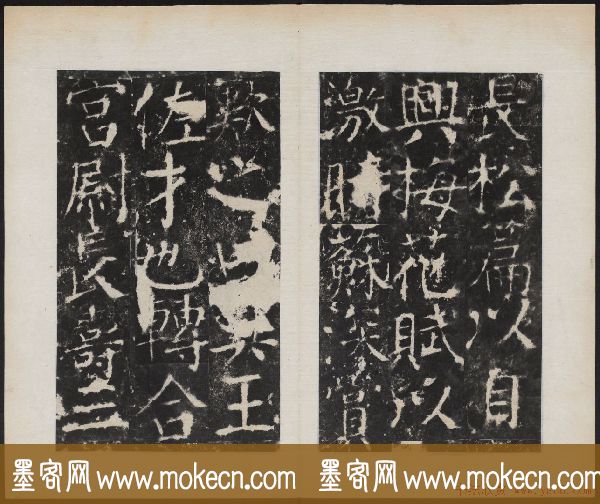 長松篇以自
興梅花賦以
激時蘇深賞
歎之曰真王
佐才也轉合
宮尉長壽三
墨客网 www.mokecn.com
墨客网 www.mokecn.com